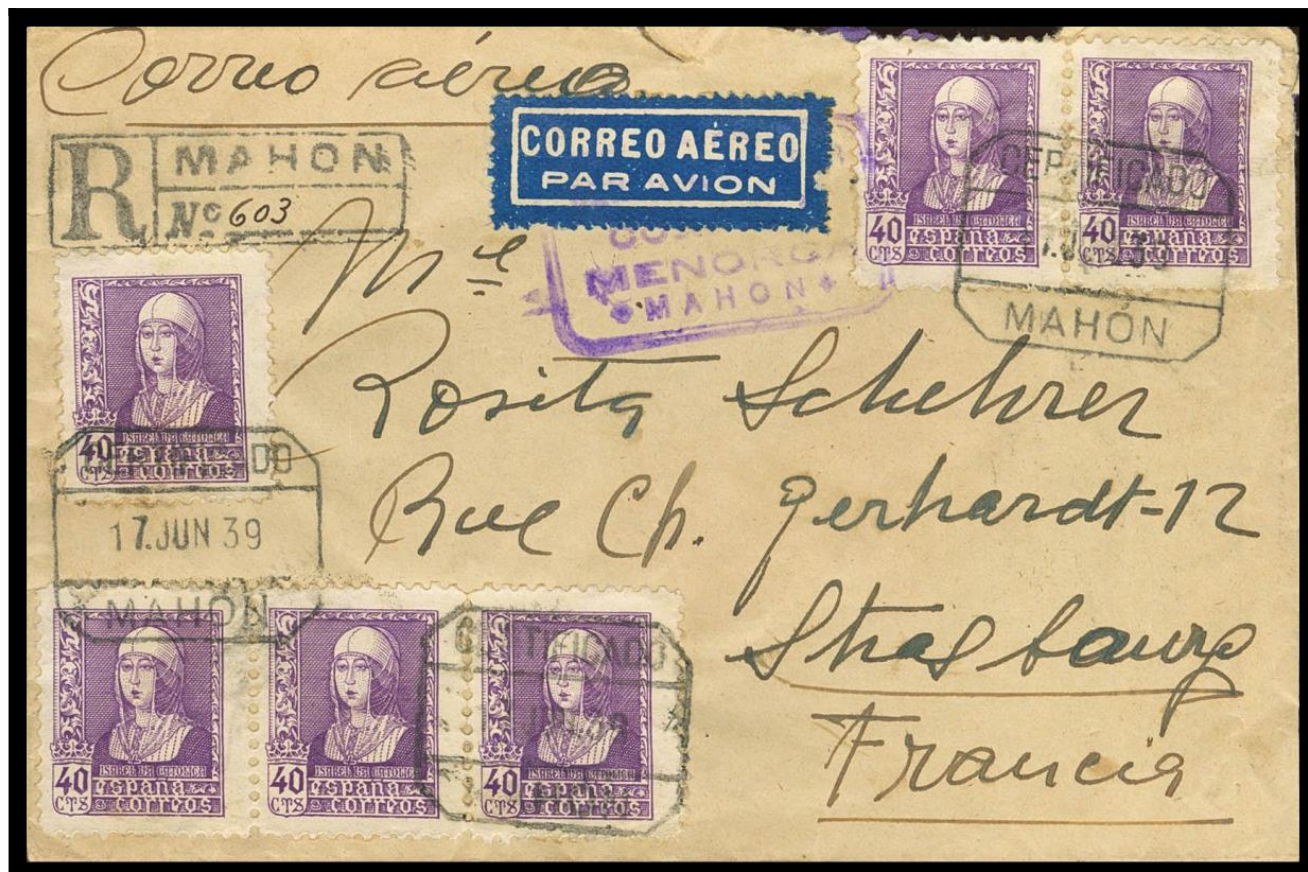 Correo aéreo
CORREO AÉREO
PAR AVION
R
MAHON
Nº 603
MENORCA
MAHON
40 CTS
ISABEL LA CATOLICA
españa
correos
40 CTS
ISABEL LA CATOLICA
españa
correos
CERTIFICADO
MAHÓN
Mlle
Rosita Schehrer
Rue Ch. Gerhardt-12
Strasbourg
Francia
40 CTS
ISABEL LA CATOLICA
españa
correos
CERTIFICADO
17.JUN 39
MAHÓN
40 CTS
ISABEL LA CATOLICA
españa
correos
40 CTS
ISABEL LA CATOLICA
españa
correos
40 CTS
ISABEL LA CATOLICA
españa
correos
CERTIFICADO